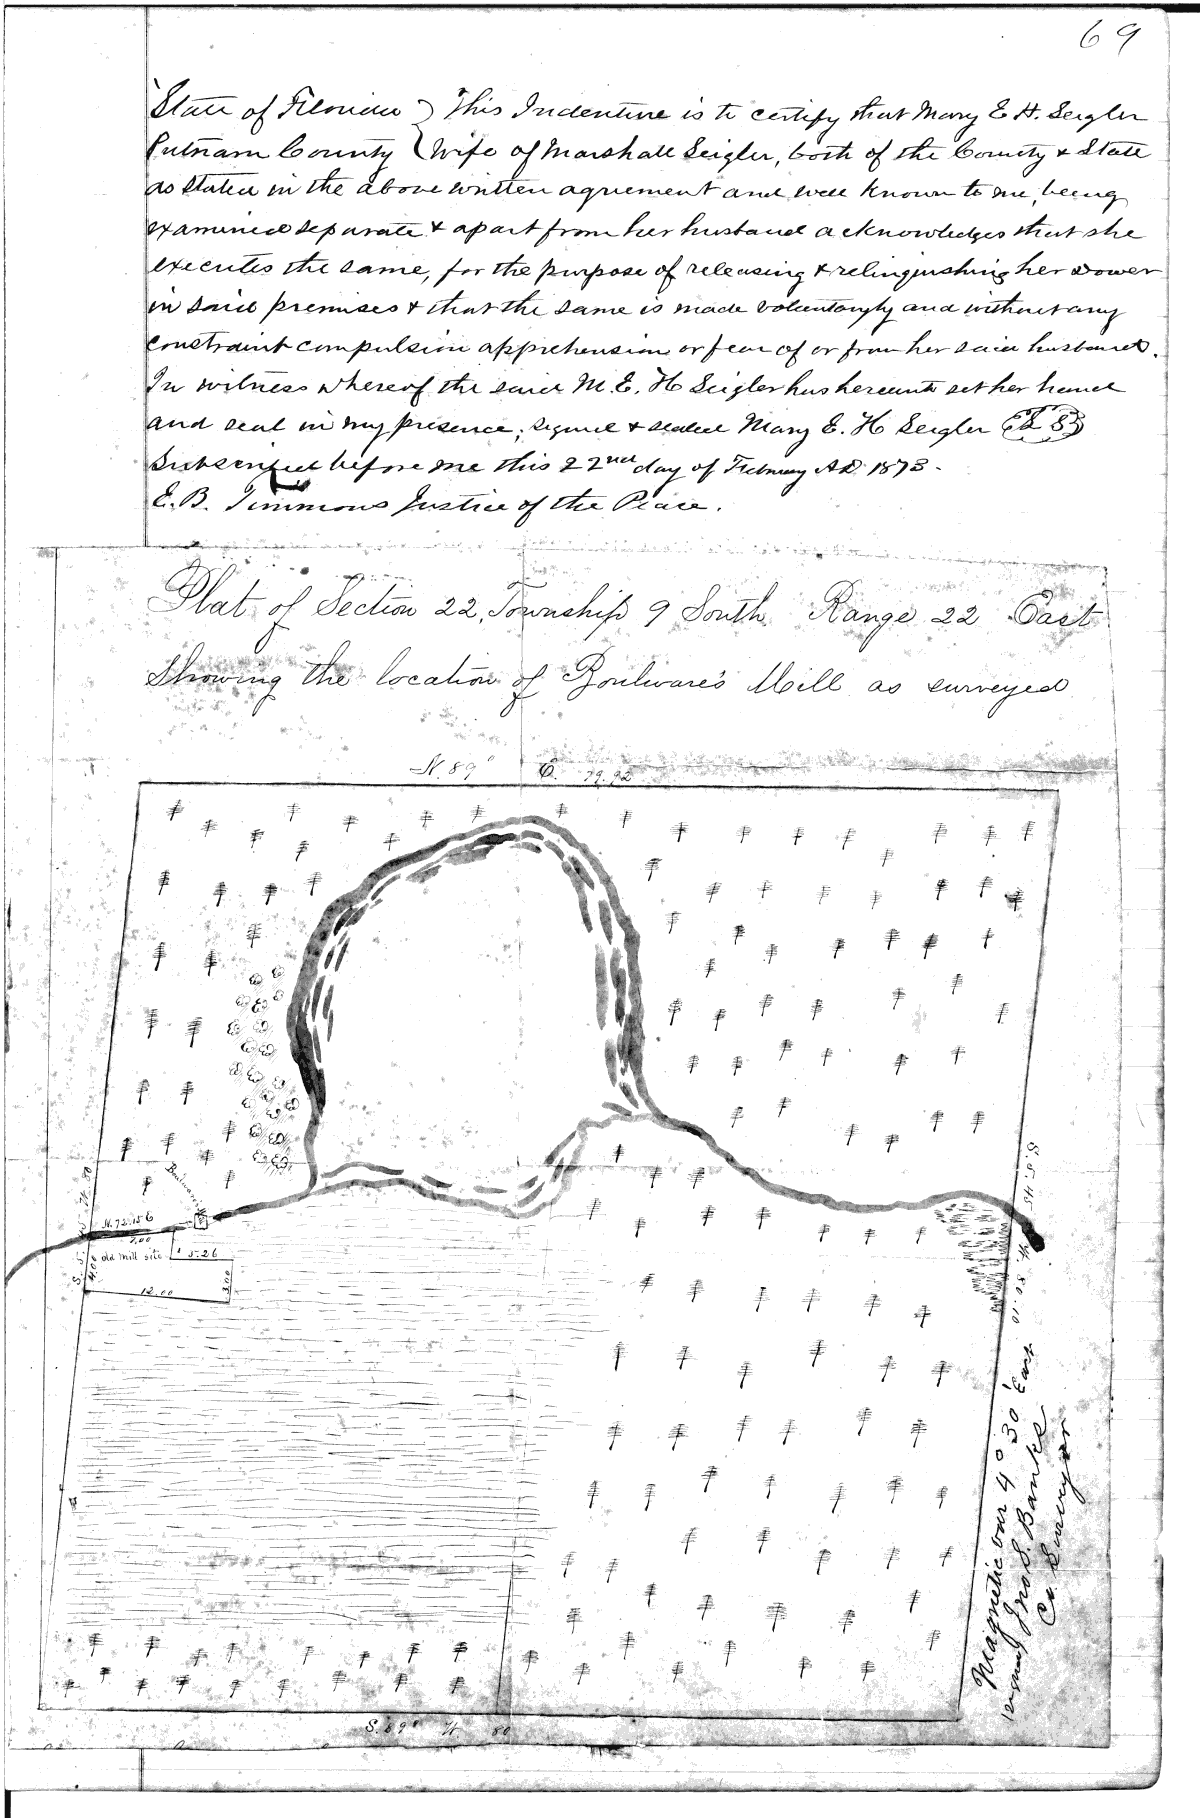 69
State of Florida } This Indenture is to certify that Mary E H. Seigler
Putnam County { Wife of Marshall Seigler, both of the County & State
as stated in the above written agrument and well known to me, being
examined separate & apart from her husband acknowledges that she
executes the same, for the purpose of releasing & relinquishing her dower
in said premises & that the same is made voluntaryly and without any
constraint compulsion apprehension or fear of or from her said husband.
In witness whereof the said M. E. H Seigler has hereunto set her hand
and seal in my presence; signed & sealed Mary E. H Seigler (L S)
Subscribed before me this 22nd day of February A.D. 1873.
E. B. Timmons Justice of the Peace.
Plat of Section 22, Township 9 South Range 22 East
Showing the location of Boulware's Mill as surveyed
N. 89° E. 79.92
N. 72.15 E
7.00
old mill site
5.26
4.00
3.00
12.00
S. 5. 45 W. 80.10
Magnetic var 4° 30' East
Jno S. Banks
Co Surveyor
S. 89° W 80